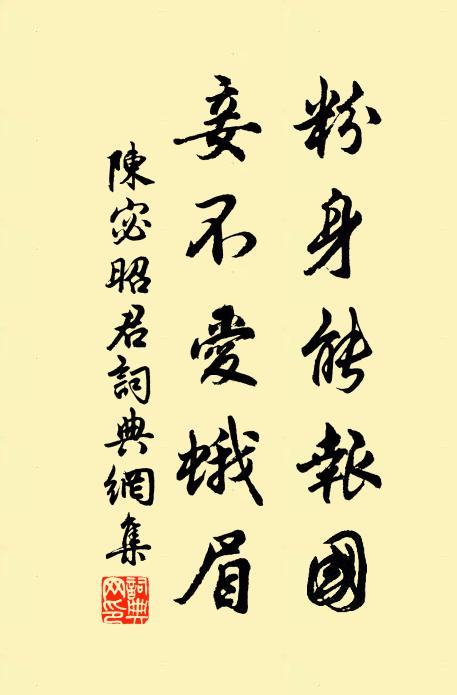 粉身能報國
妾不愛蛾眉
陳宓昭君詞典網集
詞典網印